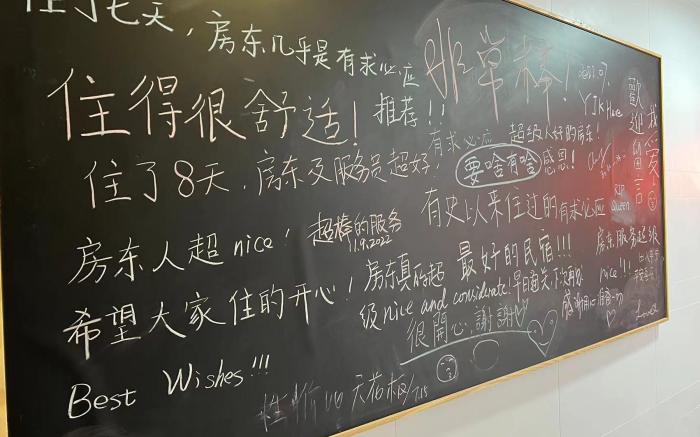 住了七天，房东几乎是有求必应
推荐!!
住得很舒适!
住了8天，房东及服务员超好!
房东人超nice!
希望大家住的开心!
Best Wishes!!!
超棒的服务
11.9.2022
非常棒!
有求必应 超级人好的房东!
要啥有啥 感恩!
有史以来住过的有求必应
最好的民宿!!!
房东真的超
级nice and considerate!早日通关,下次再
很開心,謝謝
性价比天花板 7.15
歡迎留言
RIP
Queen
房东服务超级
nice!!!